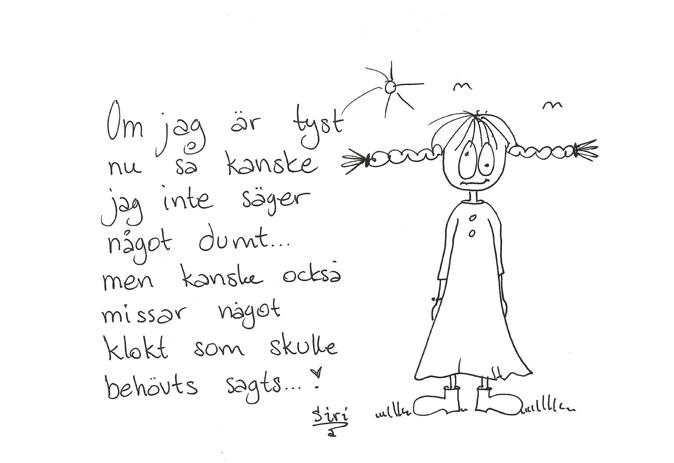 Om jag är tyst
nu så kanske
jag inte säger
något dumt...
men kanske också
missar något
klokt som skulle
behövts sagts...!
Siri